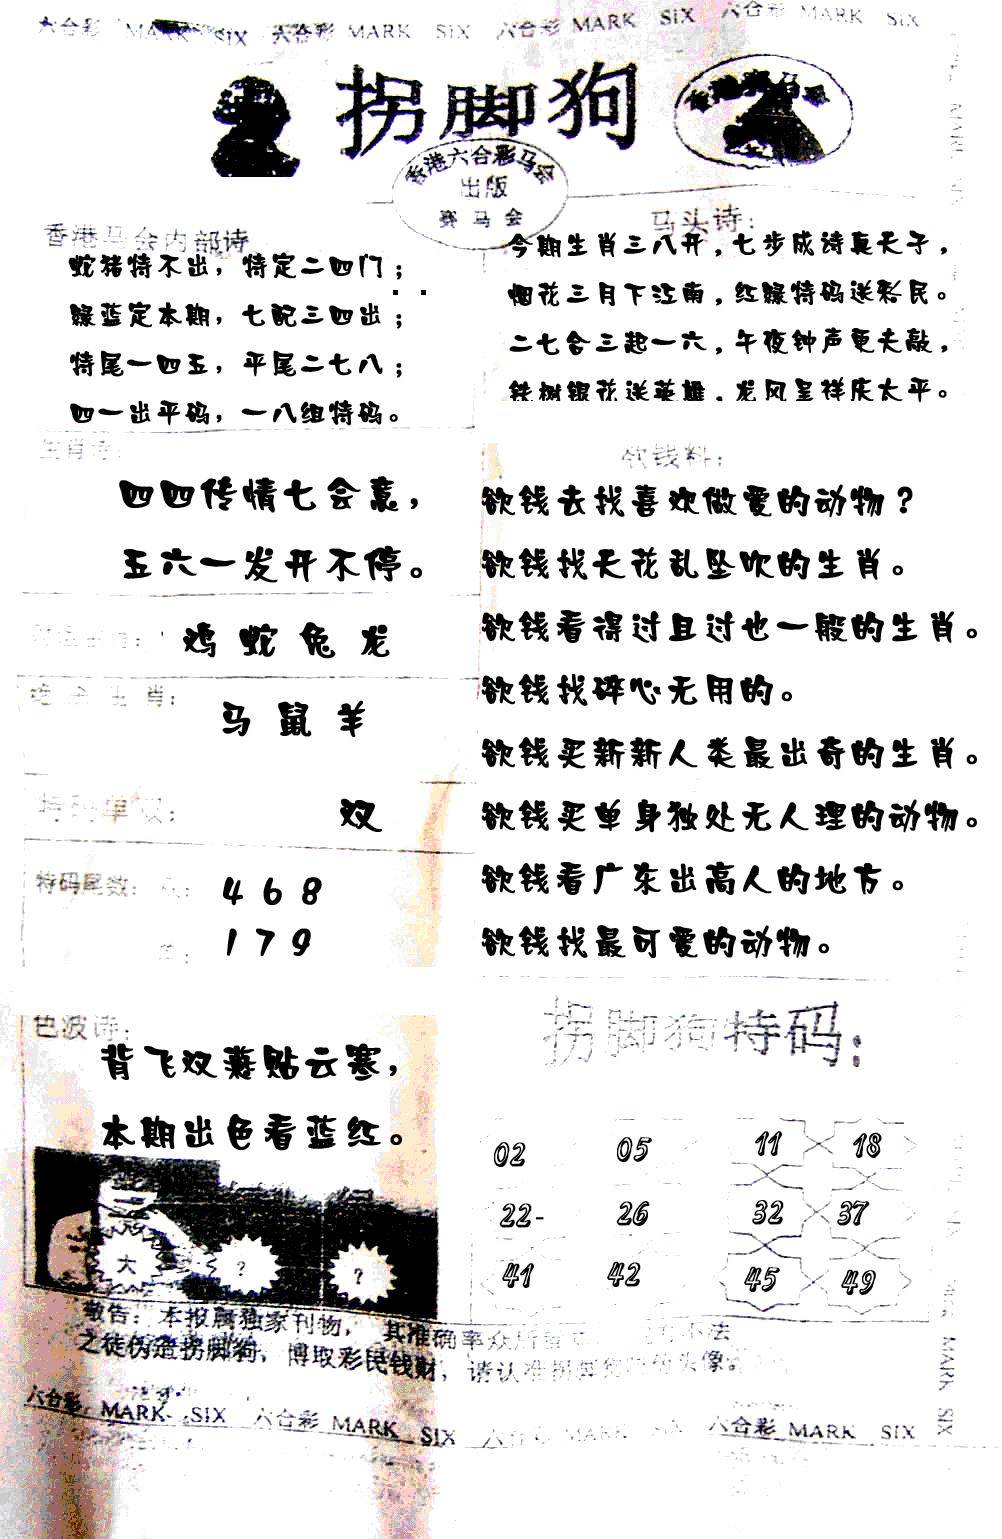 六合彩 MARK SIX 六合彩 MARK SIX 六合彩 MARK SIX 六合彩 MARK SIX
拐脚狗
香港六合彩马会
出版
赛马会
香港马会内部诗
蛇猪特不出，特定二四门；
绿蓝定本期，七配三四出；
特尾一四五，平尾二七八；
四一出平码，一八组特码。
马头诗：
今期生肖三八开，七步成诗真天子，
烟花三月下江南，红绿特码送彩民。
二七合三起一六，午夜钟声更夫敲，
铁树银花送英雄，龙凤呈祥庆太平。
生肖诗：
四四传情七会意，
五六一发开不停。
鸡 蛇 兔 龙
绝杀生肖：
马 鼠 羊
特码单双：
双
特码尾数：
4 6 8
1 7 9
欲钱料：
欲钱去找喜欢做爱的动物？
欲钱找天花乱坠吹的生肖。
欲钱看得过且过也一般的生肖。
欲钱找碎心无用的。
欲钱买新新人类最出奇的生肖。
欲钱买单身独处无人理的动物。
欲钱看广东出高人的地方。
欲钱找最可爱的动物。
色波诗：
背飞双燕贴云寒，
本期出色看蓝红。
大 ? ?
拐脚狗特码：
02 05 11 18
22- 26 32 37
41 42 45 49
敬告：本报属独家刊物，其准确率众所 不法
之徒伪造拐脚狗，博取彩民钱财，请认准拐脚狗 头像。
六合彩 MARK SIX 六合彩 MARK SIX 六合彩 MARK SIX 六合彩 MARK SIX
MARK SIX